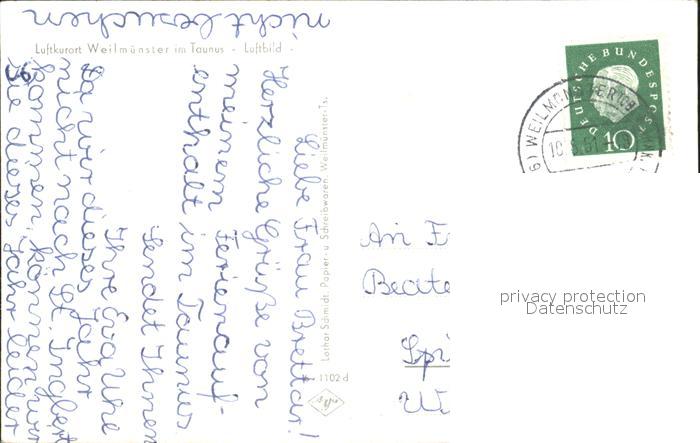 Luftkurort Weilmünster im Taunus - Luftbild -
Liebe Frau Brettar!
Herzliche Grüße von
meinem Ferienauf-
enthalt im Taunus
sendet Ihnen
Ihre Eva Uhe
Da wir dieses Jahr
nicht nach St. Ingbert
kommen, können wir
Sie dieses Jahr leider
nicht besuchen
Lothar Schmidt, Papier- u. Schreibwaren, Weilmünster-Ts.
1102 d
DEUTSCHE BUNDESPOST
10
WEILMÜNSTER
An
Beate
privacy protection
Datenschutz